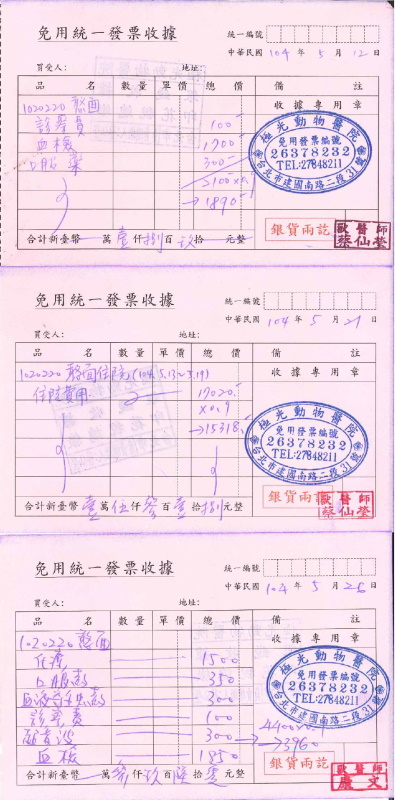 免用統一發票收據
統一編號
中華民國 104 年 5 月 12 日
買受人： 地址：
品 名 數量 單價 總價 備 註
1020220 憨面 收據專用章
診察費 100
血檢 1700
口服藥 300
2100x0.9
→1890
極光動物醫院
免用發票編號
26378232
TEL:27848211
台北市建國南路二段31號
銀貨兩訖
獸醫師
蔡仙瑩
合計新臺幣 萬壹仟捌百玖拾 元整
免用統一發票收據
統一編號
中華民國 104 年 5 月 21 日
買受人： 地址：
品 名 數量 單價 總價 備 註
1020220 憨面住院(104.5.13~5.19) 收據專用章
住院費用 17020.-
x0.9
→15318.-
極光動物醫院
免用發票編號
26378232
TEL:27848211
台北市建國南路二段31號
銀貨兩訖
獸醫師
蔡仙瑩
合計新臺幣壹萬伍仟參百壹拾捌元整
免用統一發票收據
統一編號
中華民國 104 年 5 月 26 日
買受人： 地址：
品 名 數量 單價 總價 備 註
1020220 憨面 收據專用章
1500
口服藥 350
300
診察費 100
300
4400x0.9
→3960
血檢 1850
極光動物醫院
免用發票編號
26378232
TEL:27848211
台北市建國南路二段31號
銀貨兩訖
獸醫師
合計新臺幣 萬參仟玖百陸拾零元整